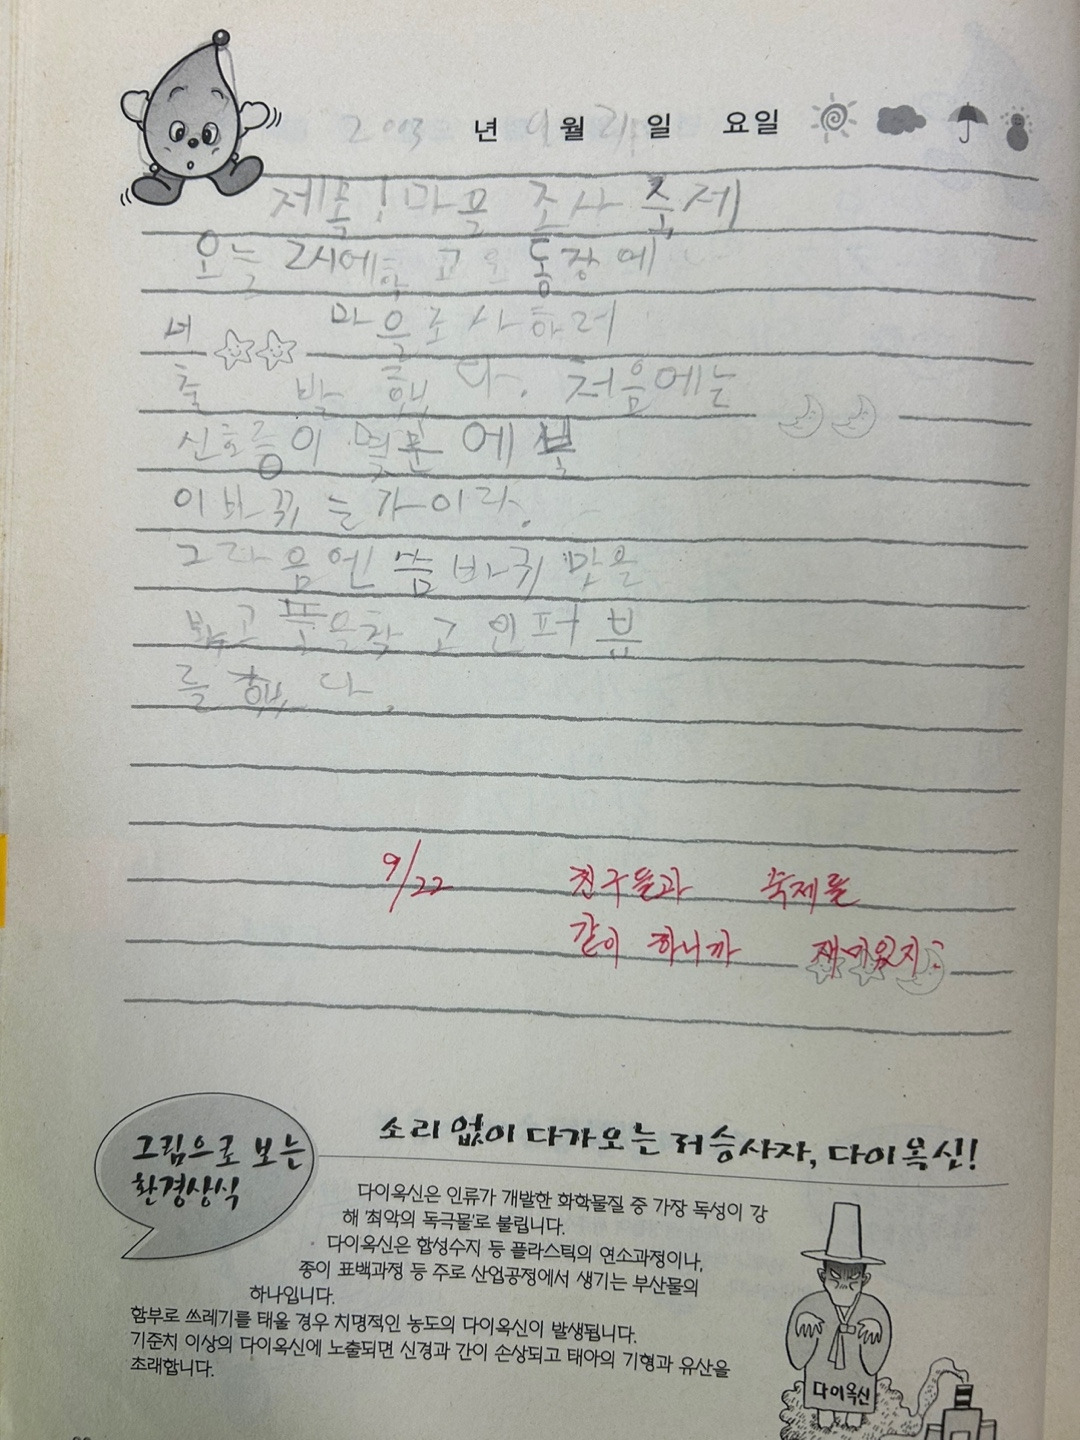 2003 년 9 월 21 일 요일
제목! 마을 조사 축제
오늘 2시에 학교 운동장에
마을조사하러
출발했다. 처음에는
신호등이 몇분에 불
이바뀌는가이다.
그다음엔 씀바귀 맛을
보고 뜻을적고 인터뷰
를 했다.
9/22 친구들과 축제를
같이 하니까 재미있지?
그림으로 보는
환경상식
소리 없이 다가오는 저승사자, 다이옥신!
다이옥신은 인류가 개발한 화학물질 중 가장 독성이 강
해 '최악의 독극물'로 불립니다.
다이옥신은 합성수지 등 플라스틱의 연소과정이나,
종이 표백과정 등 주로 산업공정에서 생기는 부산물의
하나입니다.
함부로 쓰레기를 태울 경우 치명적인 농도의 다이옥신이 발생됩니다.
기준치 이상의 다이옥신에 노출되면 신경과 간이 손상되고 태아의 기형과 유산을
초래합니다.
다이옥신